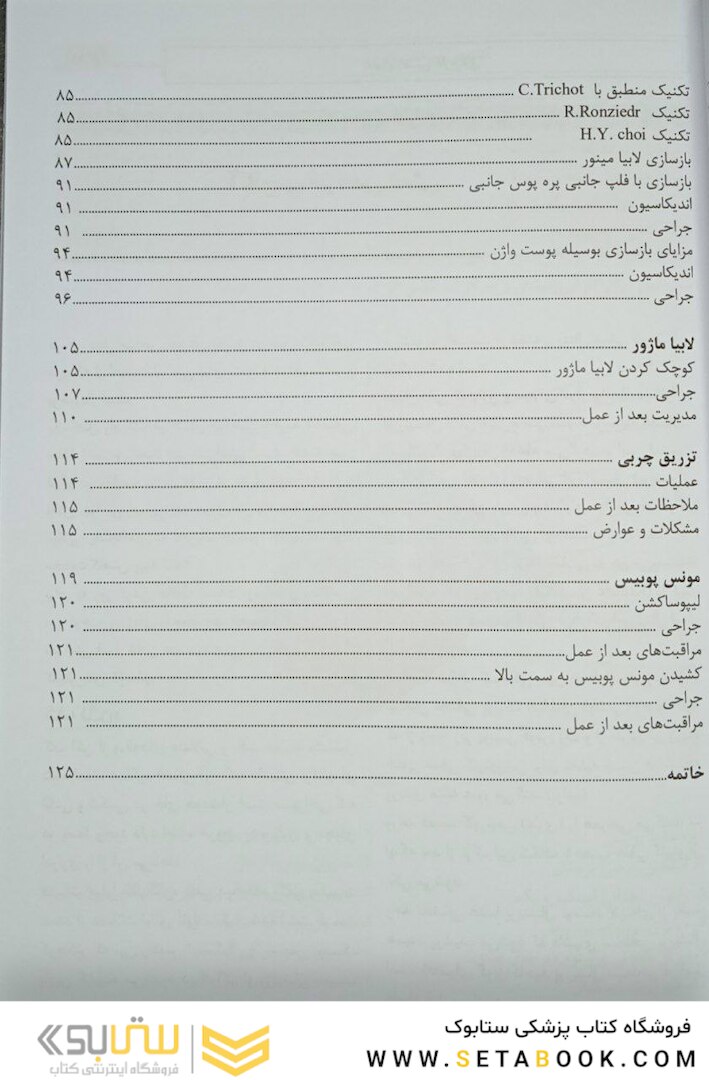 تکنیک منطبق با C.Trichot ........ ۸۵
تکنیک R.Ronziedr ........ ۸۵
تکنیک H.Y. choi ........ ۸۵
بازسازی لابیا مینور ........ ۸۷
بازسازی با فلپ جانبی پره پوس جانبی ........ ۹۱
اندیکاسیون ........ ۹۱
جراحی ........ ۹۱
مزایای بازسازی بوسیله پوست واژن ........ ۹۴
اندیکاسیون ........ ۹۴
جراحی ........ ۹۶
لابیا ماژور ........ ۱۰۵
کوچک کردن لابیا ماژور ........ ۱۰۵
جراحی ........ ۱۰۷
مدیریت بعد از عمل ........ ۱۱۰
تزریق چربی ........ ۱۱۴
عملیات ........ ۱۱۴
ملاحظات بعد از عمل ........ ۱۱۵
مشکلات و عوارض ........ ۱۱۵
مونس پوبیس ........ ۱۱۹
لیپوساکشن ........ ۱۲۰
جراحی ........ ۱۲۰
مراقبت‌های بعد از عمل ........ ۱۲۱
کشیدن مونس پوبیس به سمت بالا ........ ۱۲۱
جراحی ........ ۱۲۱
مراقبت‌های بعد از عمل ........ ۱۲۱
خاتمه ........ ۱۲۵
فروشگاه کتاب پزشکی ستابوک
WWW.SETABOOK.COM
ستابوک
فروشگاه اینترنتی کتاب